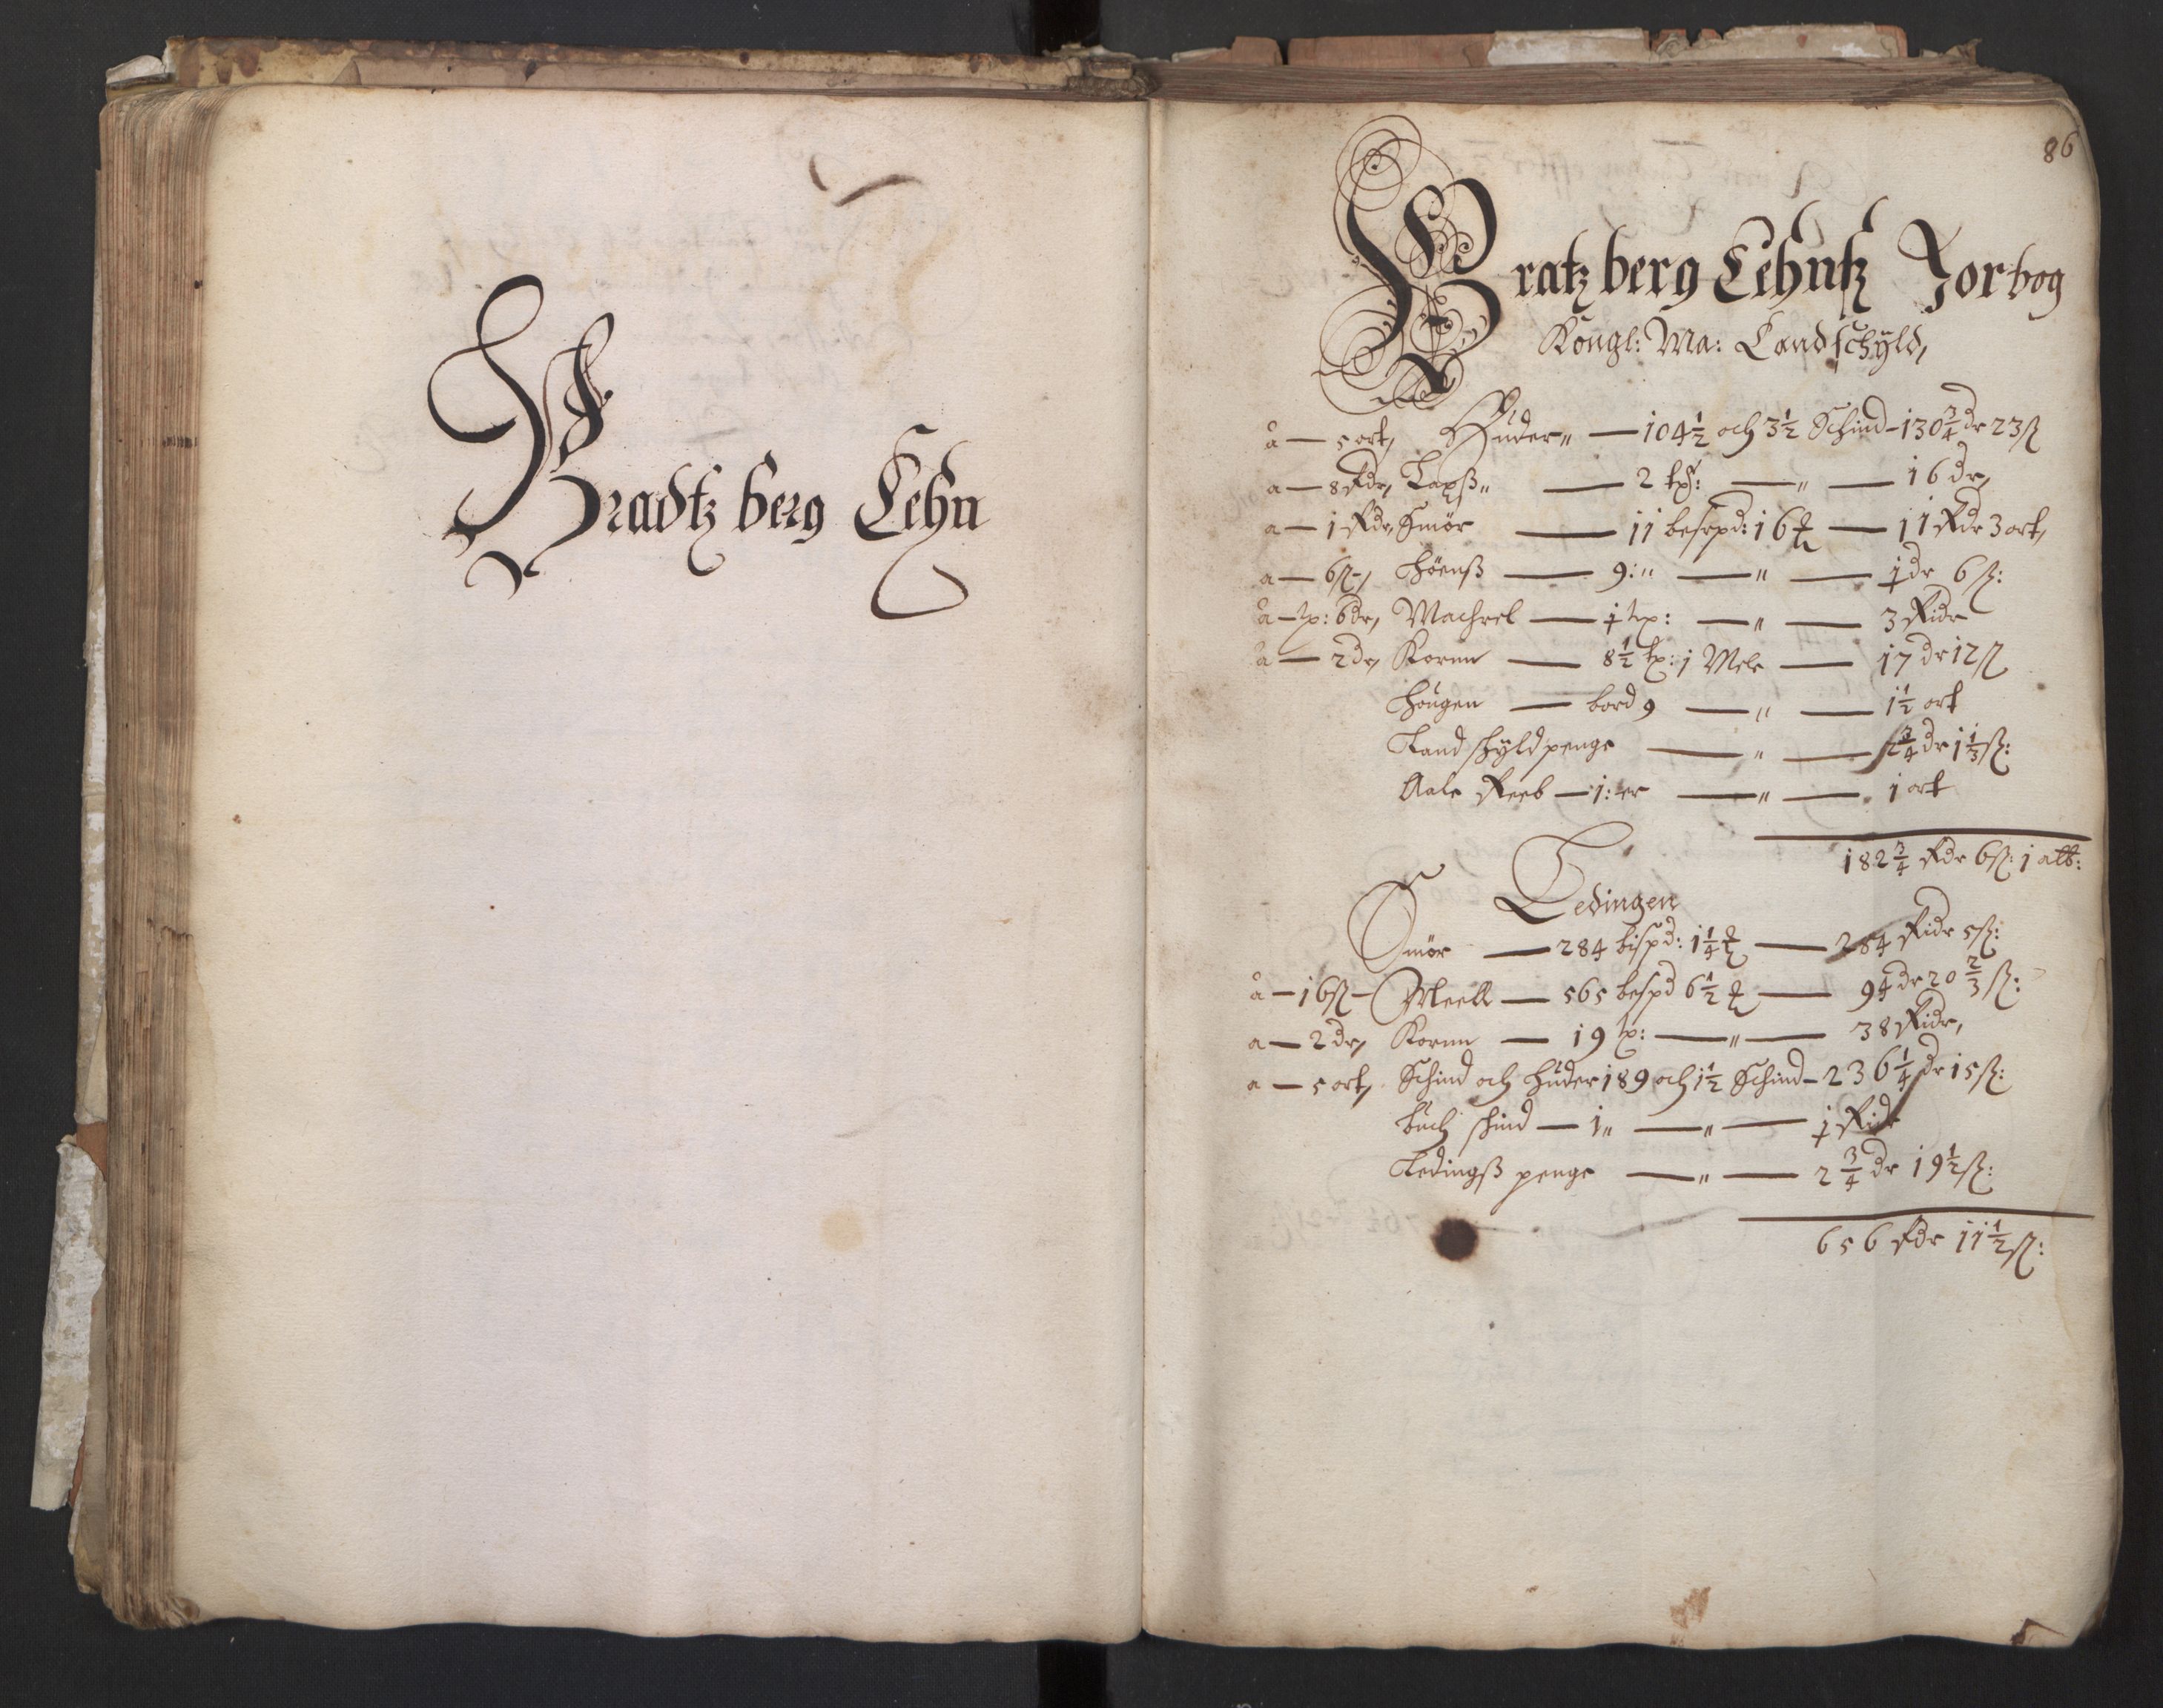 Bradtzberg Lehn
86
Bratzberg Lehntz Jorbog
Kongl: Ma: Landschÿld,
å — 5 ort, Huder — 104 1/2 och 3 1/2 Schind — 130 3/4 dr 23 ß
a — 8 Rdr, Laxß — 2 tp: — " — 16 dr,
a — 1 Rdr, Smör — 11 besspd: 16 — 11 Rdr 3 ort,
a — 6 ß, Höenß — 9: " — " — 1 dr 6 ß:
å — tp: 6 dr, Machrel — 1 tp: — " — 3 Ridr
å — 2 dr, Kornn — 8 1/2 tp: 1 Mele — 17 dr 12 ß
Hougen — bord 9 — " — 1 1/2 ort
Landschÿld penge — " — 2 3/4 dr 1 1/3 ß:
Aale Reeb — 1: er — " — 1 ort
182 3/4 Rdr 6 ß: 1 alb:
Ledingen
Smör — 284 bispd: 1 1/4 — 284 Ridr 5 ß:
å — 16 ß — Meell — 565 bespd 6 1/2 — 94 dr 20 2/3 ß:
a — 2 dr, Kornn — 19 tp: — " — 38 Ridr,
a — 5 ort, Schind och huder 189 och 1 1/2 Schind — 236 1/4 dr 15 ß:
Buch schind — 1 " — " — 1 Ridr
Ledingß penge — " — 2 3/4 dr 19 1/2 ß:
656 Rdr 11 1/2 ß: